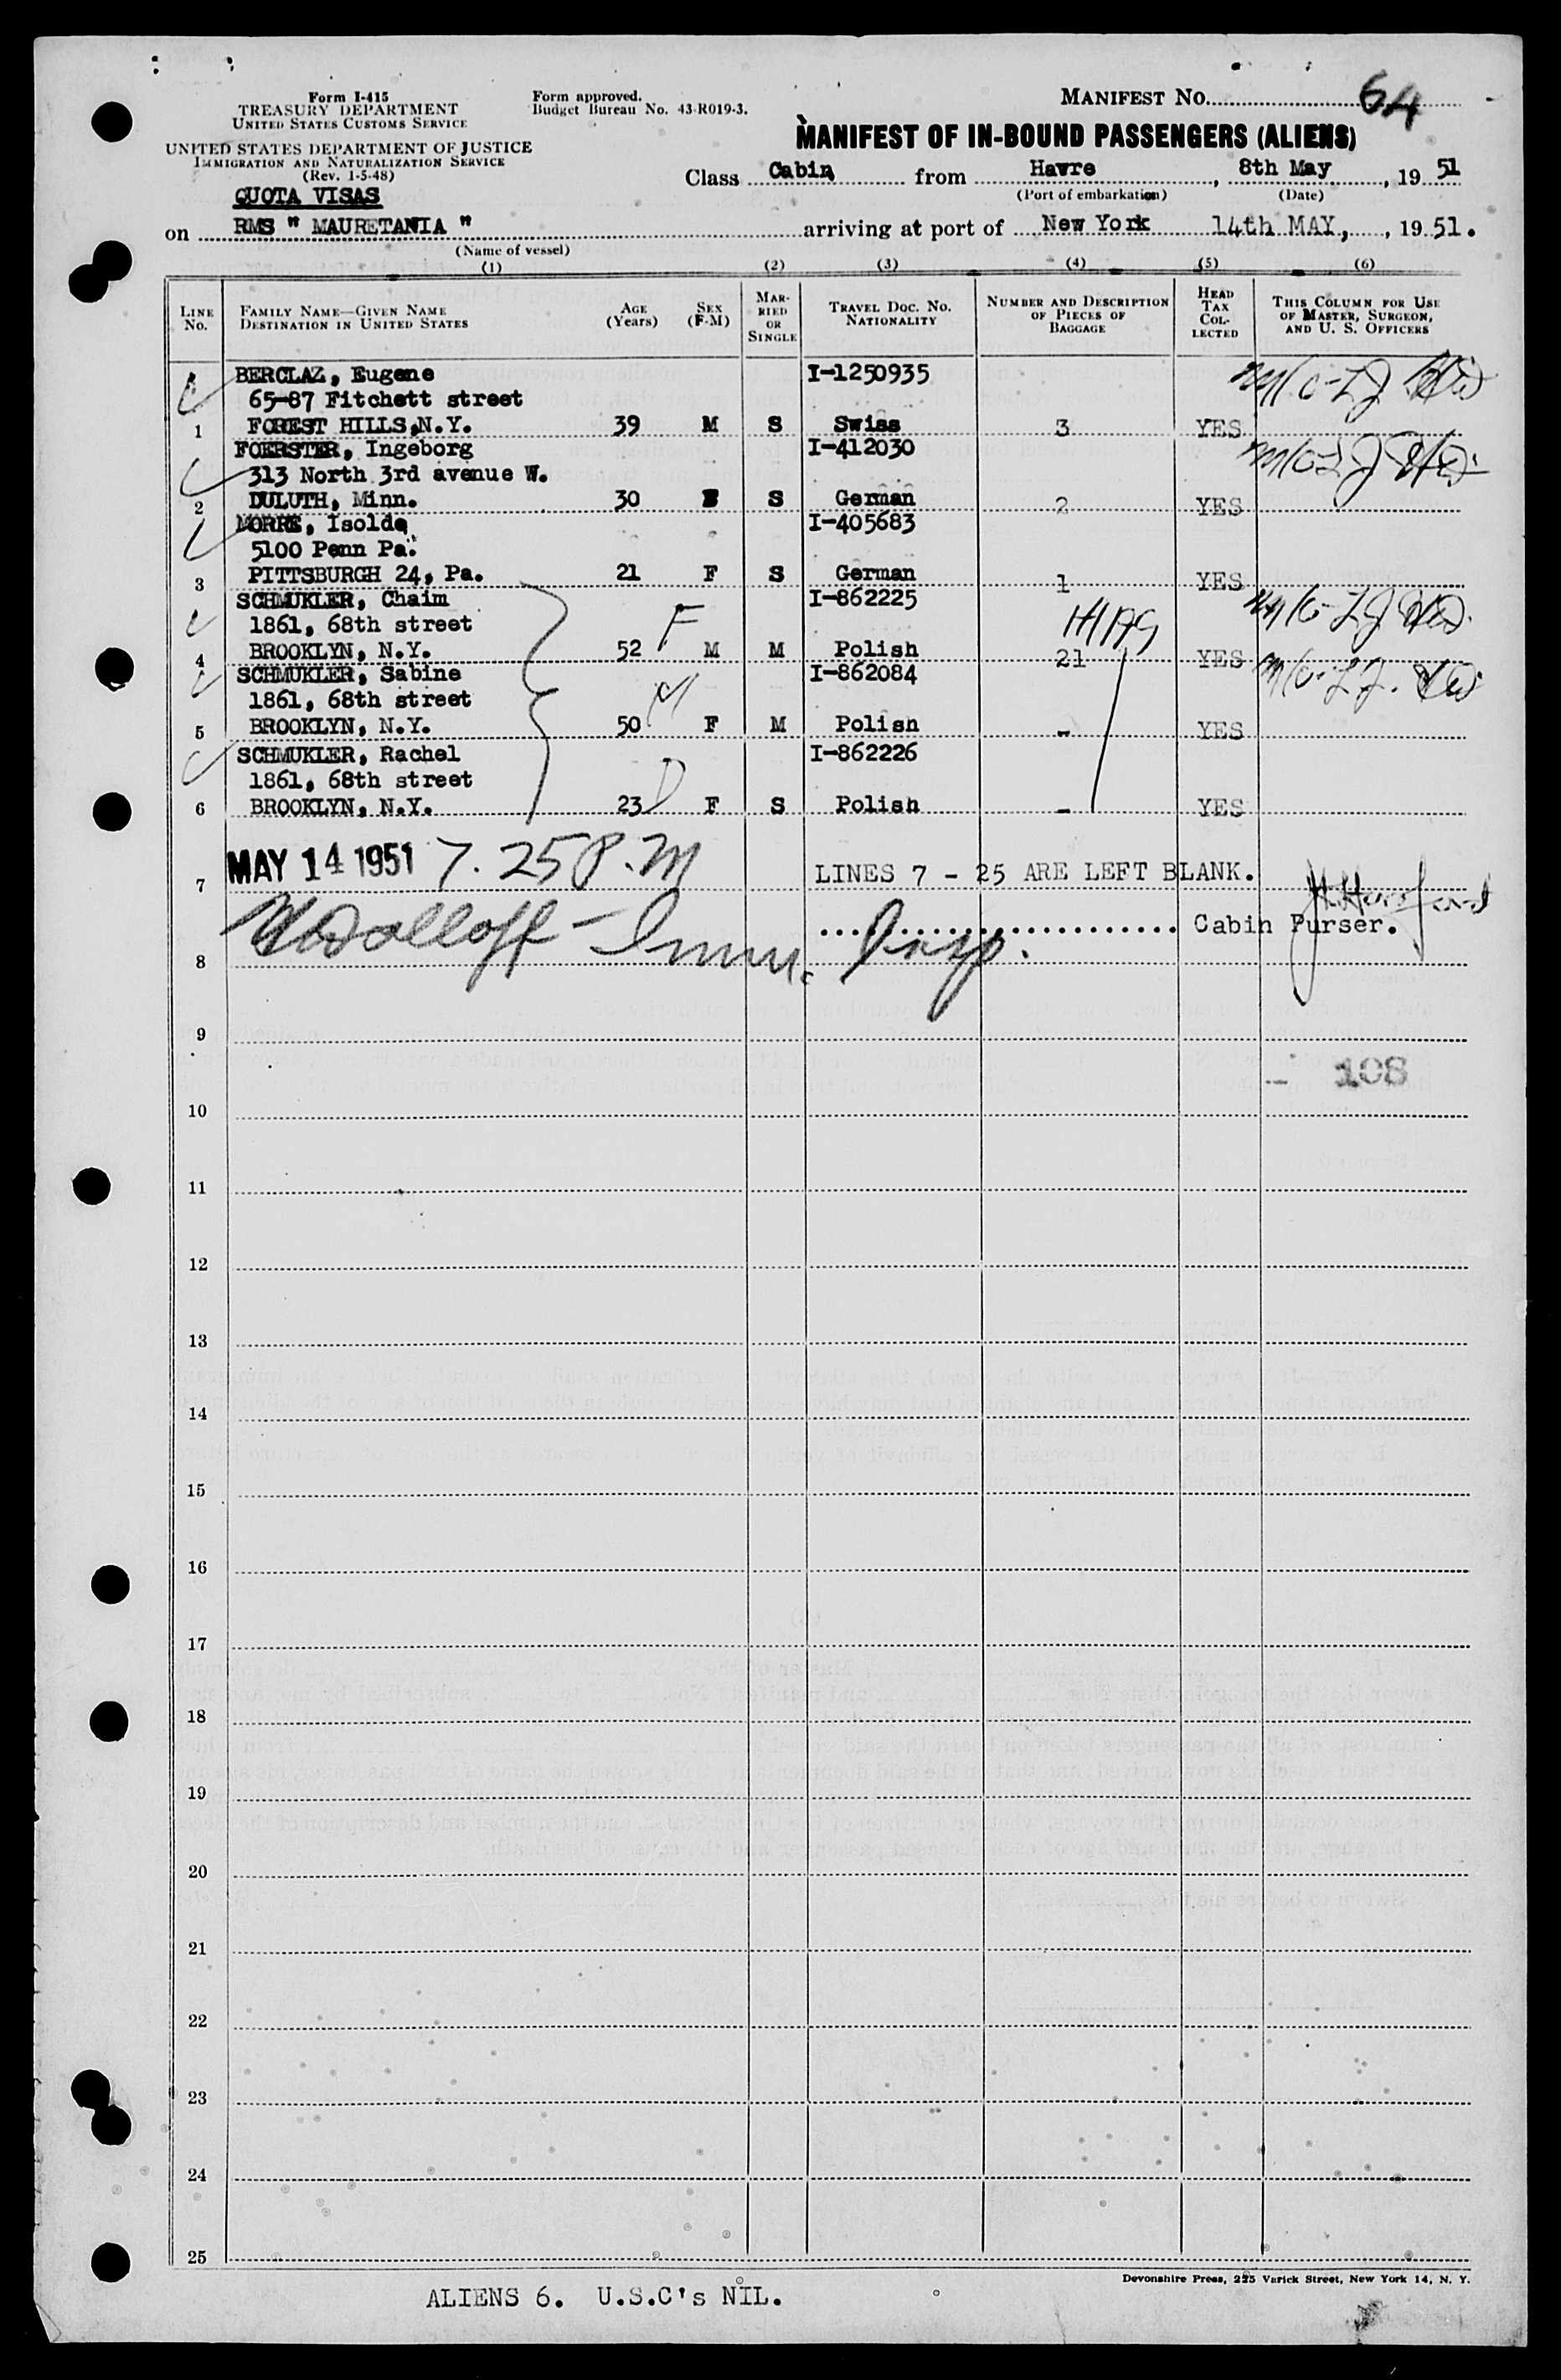 Form I-415
TREASURY DEPARTMENT
UNITED STATES CUSTOMS SERVICE
UNITED STATES DEPARTMENT OF JUSTICE
IMMIGRATION AND NATURALIZATION SERVICE
(Rev. 1-5-48)
Form approved.
Budget Bureau No. 43-R019-3.
MANIFEST NO. 64
MANIFEST OF IN-BOUND PASSENGERS (ALIENS)
Class Cabin from Havre, 8th May, 19 51
(Port of embarkation) (Date)
QUOTA VISAS
on RMS " MAURETANIA " arriving at port of New York 14th MAY, , 19 51.
(Name of vessel)
(1) (2) (3) (4) (5) (6)
LINE NO. FAMILY NAME—GIVEN NAME DESTINATION IN UNITED STATES AGE (YEARS) SEX (F-M) MARRIED OR SINGLE TRAVEL DOC. NO. NATIONALITY NUMBER AND DESCRIPTION OF PIECES OF BAGGAGE HEAD TAX COLLECTED THIS COLUMN FOR USE OF MASTER, SURGEON, AND U. S. OFFICERS
BERCLAZ, Eugene I-1250935
65-87 Fitchett street
1 FOREST HILLS,N.Y. 39 M S Swiss 3 YES
FOERSTER, Ingeborg I-412030
313 North 3rd avenue W.
2 DULUTH, Minn. 30 F S German 2 YES
Isolde I-405683
5100 Penn Pa.
3 PITTSBURGH 24, Pa. 21 F S German 1 YES
SCHMUKLER, Chaim I-862225
1861, 68th street F HIAS
4 BROOKLYN, N.Y. 52 M M Polish 21 YES
SCHMUKLER, Sabine I-862084
1861, 68th street M
5 BROOKLYN, N.Y. 50 F M Polish - YES
SCHMUKLER, Rachel I-862226
1861, 68th street D
6 BROOKLYN, N.Y. 23 F S Polish - YES
7 MAY 14 1951 7.25 P.M LINES 7 - 25 ARE LEFT BLANK.
8 Imm. Insp. Cabin Purser.
9
- 108
10
11
12
13
14
15
16
17
18
19
20
21
22
23
24
25
Devonshire Press, 225 Varick Street, New York 14, N. Y.
ALIENS 6. U.S.C's NIL.